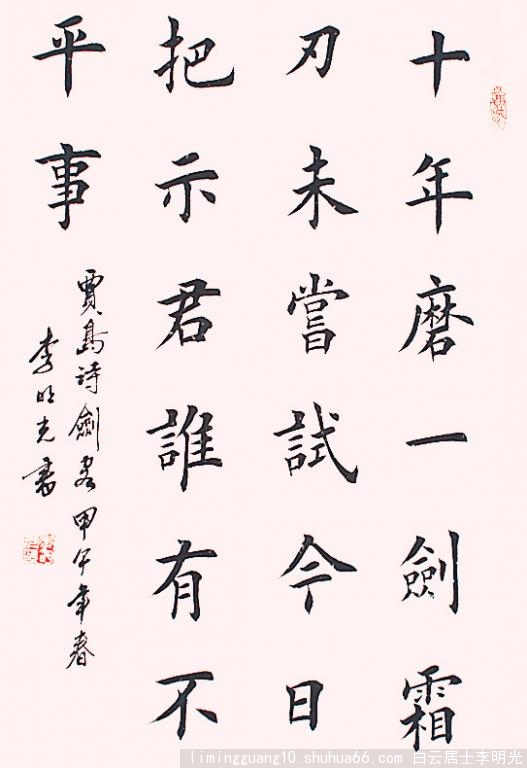 十年磨一劍霜
刃未嘗試今日
把示君誰有不
平事
賈島詩劍客甲午年春
李明光書
limingguang10.shuhua66.com 白云居士李明光